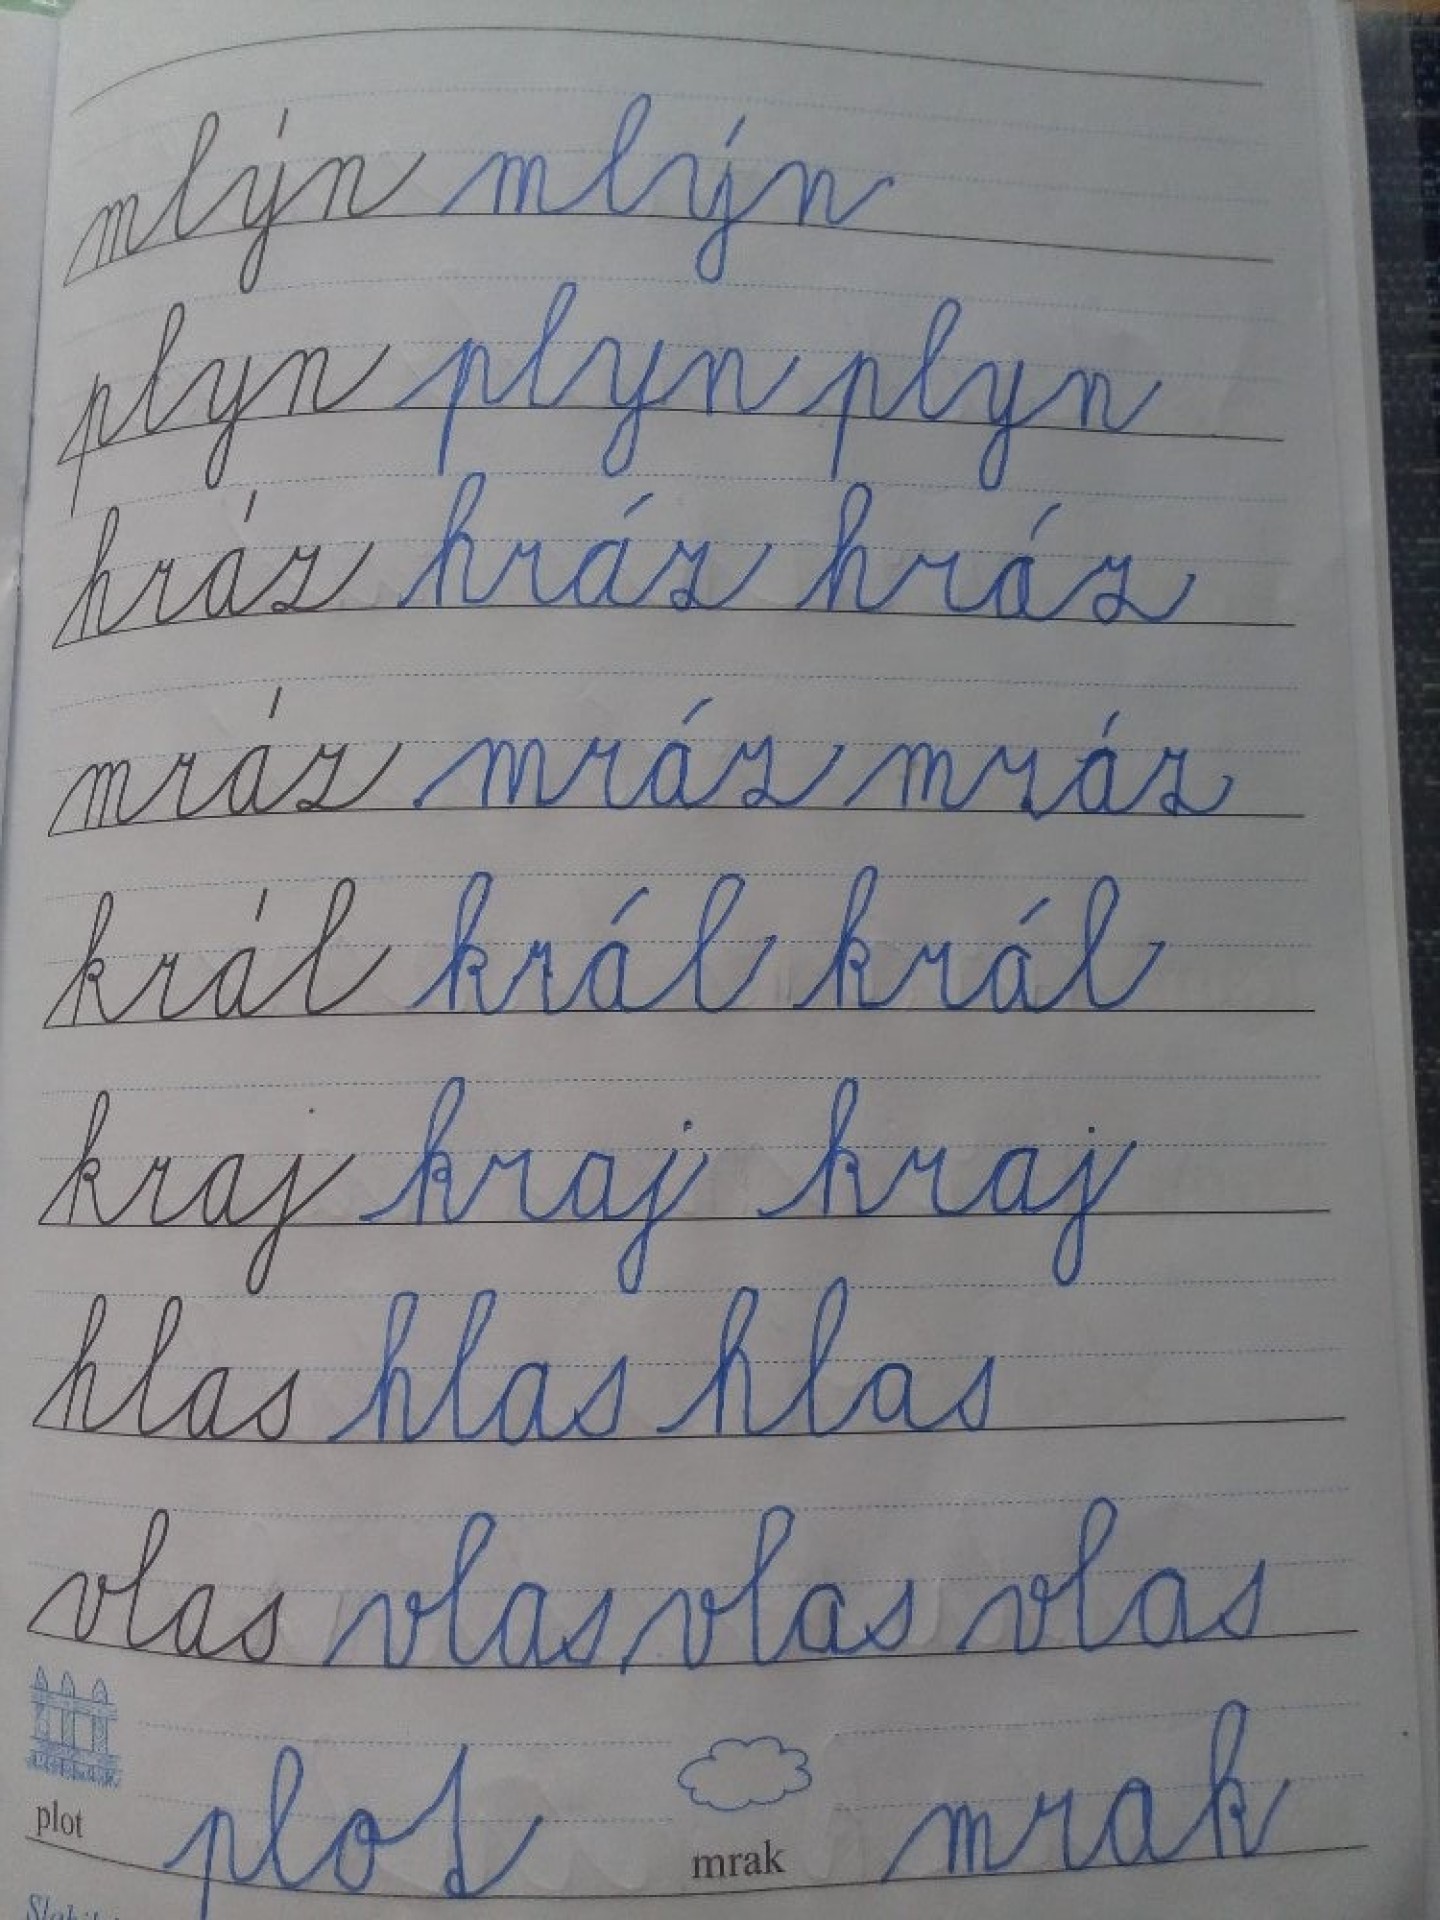 mlýn mlýn
plyn plyn plyn
hráz hráz hráz
mráz mráz mráz
král král král
kraj kraj kraj
hlas hlas hlas
vlas vlas vlas vlas
plot plot mrak mrak